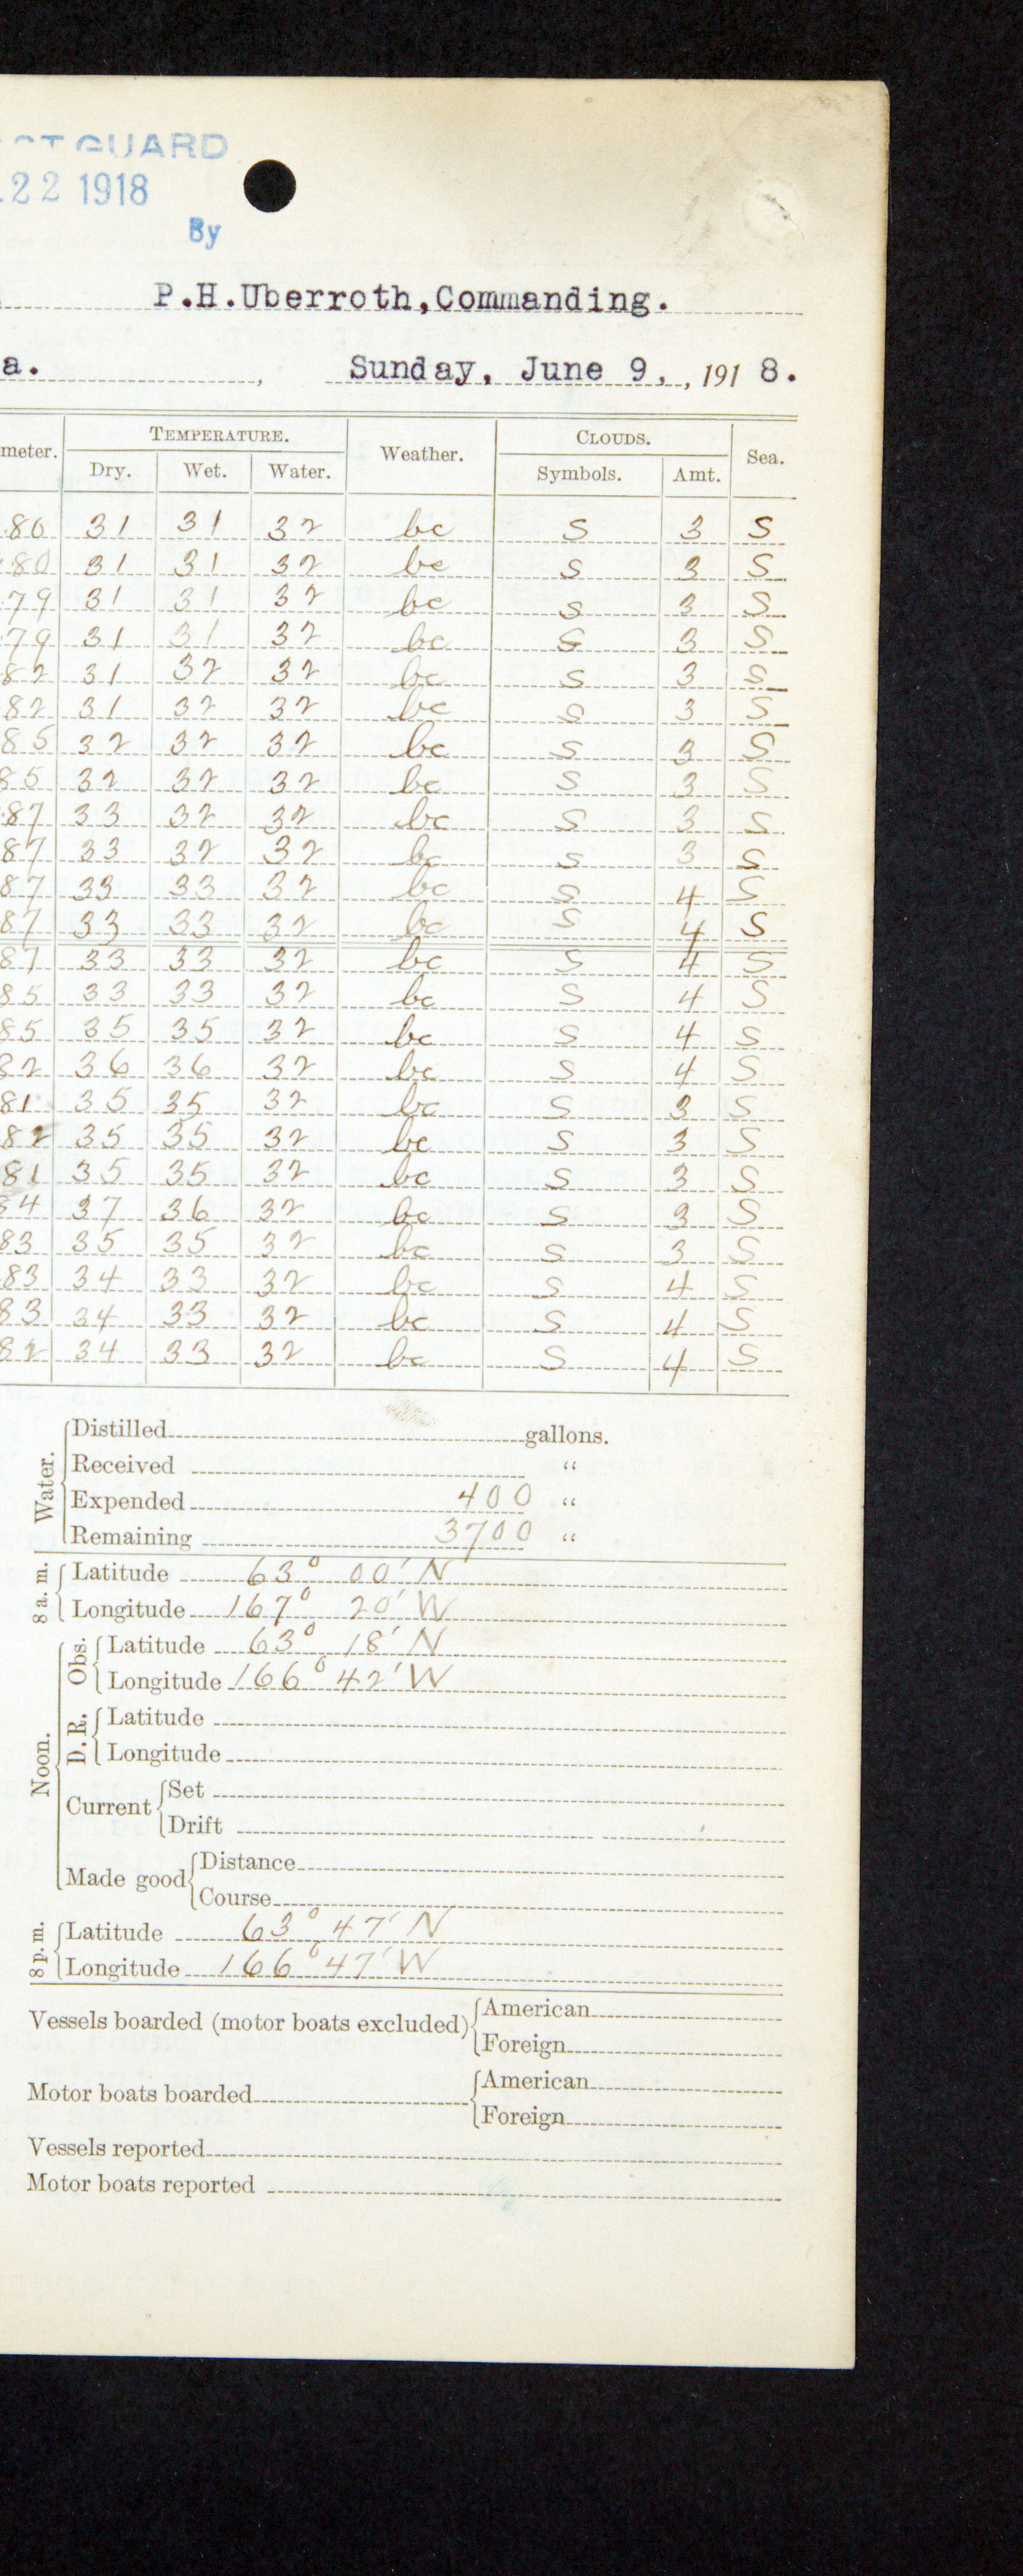 GUARD
22 1918
By
P.H.Uberroth,Commanding.
a. , Sunday, June 9, , 191 8.
meter. TEMPERATURE. Weather. CLOUDS. Sea.
Dry. Wet. Water. Symbols. Amt.
80 31 31 32 bc S 3 S
80 31 31 32 bc S 3 S
79 31 31 32 bc S 3 S
79 31 31 32 bc S 3 S
82 31 32 32 bc S 3 S
82 31 32 32 bc S 3 S
85 32 32 32 bc S 3 S
85 32 32 32 bc S 3 S
87 33 32 32 bc S 3 S
87 33 32 32 bc S 3 S
87 33 33 32 bc S 4 S
87 33 33 32 bc S 4 S
87 33 33 32 bc S 4 S
85 33 33 32 bc S 4 S
85 35 35 32 bc S 4 S
82 36 36 32 bc S 4 S
81 35 35 32 bc S 3 S
82 35 35 32 bc S 3 S
81 35 35 32 bc S 3 S
84 37 36 32 bc S 3 S
83 35 35 32 bc S 3 S
83 34 33 32 bc S 4 S
83 34 33 32 bc S 4 S
82 34 33 32 bc S 4 S
Water.
Distilled gallons.
Received "
Expended 400 "
Remaining 3700 "
8 a. m.
Latitude 63° 00' N
Longitude 167° 20' W
Noon.
Obs.
Latitude 63° 18' N
Longitude 166° 42' W
D. R.
Latitude
Longitude
Current
Set
Drift
Made good
Distance
Course
8 p. m.
Latitude 63° 47' N
Longitude 166° 47' W
Vessels boarded (motor boats excluded)
American
Foreign
Motor boats boarded
American
Foreign
Vessels reported
Motor boats reported